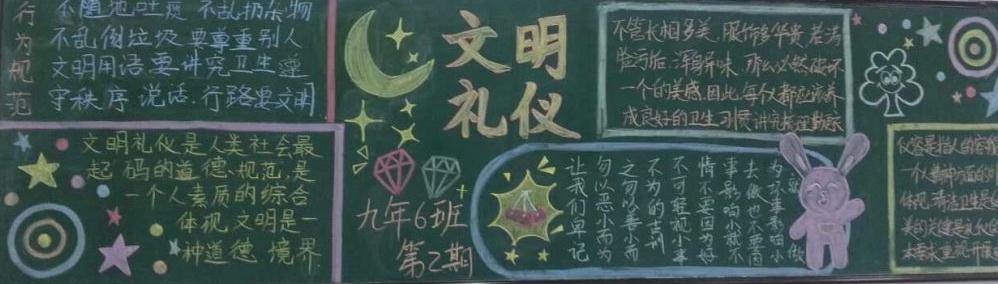 行为规范
不随地吐痰 不乱扔杂物
不乱倒垃圾 要尊重别人
文明用语 要讲究卫生 遵
守秩序 说话、行路要文明
文明礼仪是人类社会最
起码的道德、规范,是
一个人素质的综合
体现 文明是一
种道德 境界
文明
礼仪
九年6班
第2期
不管长相多美、服饰多华贵,若满
脸污垢、浑身异味,那么必然破坏
一个的美感,因此,每个人都应该养
成良好的卫生习惯,讲究
为坏事影响小
去做也不要因
事影响小就不
情不要因为好
不可轻视小事
不为的告别
之勿以善小而
勿以恶小而为
让我们牢记